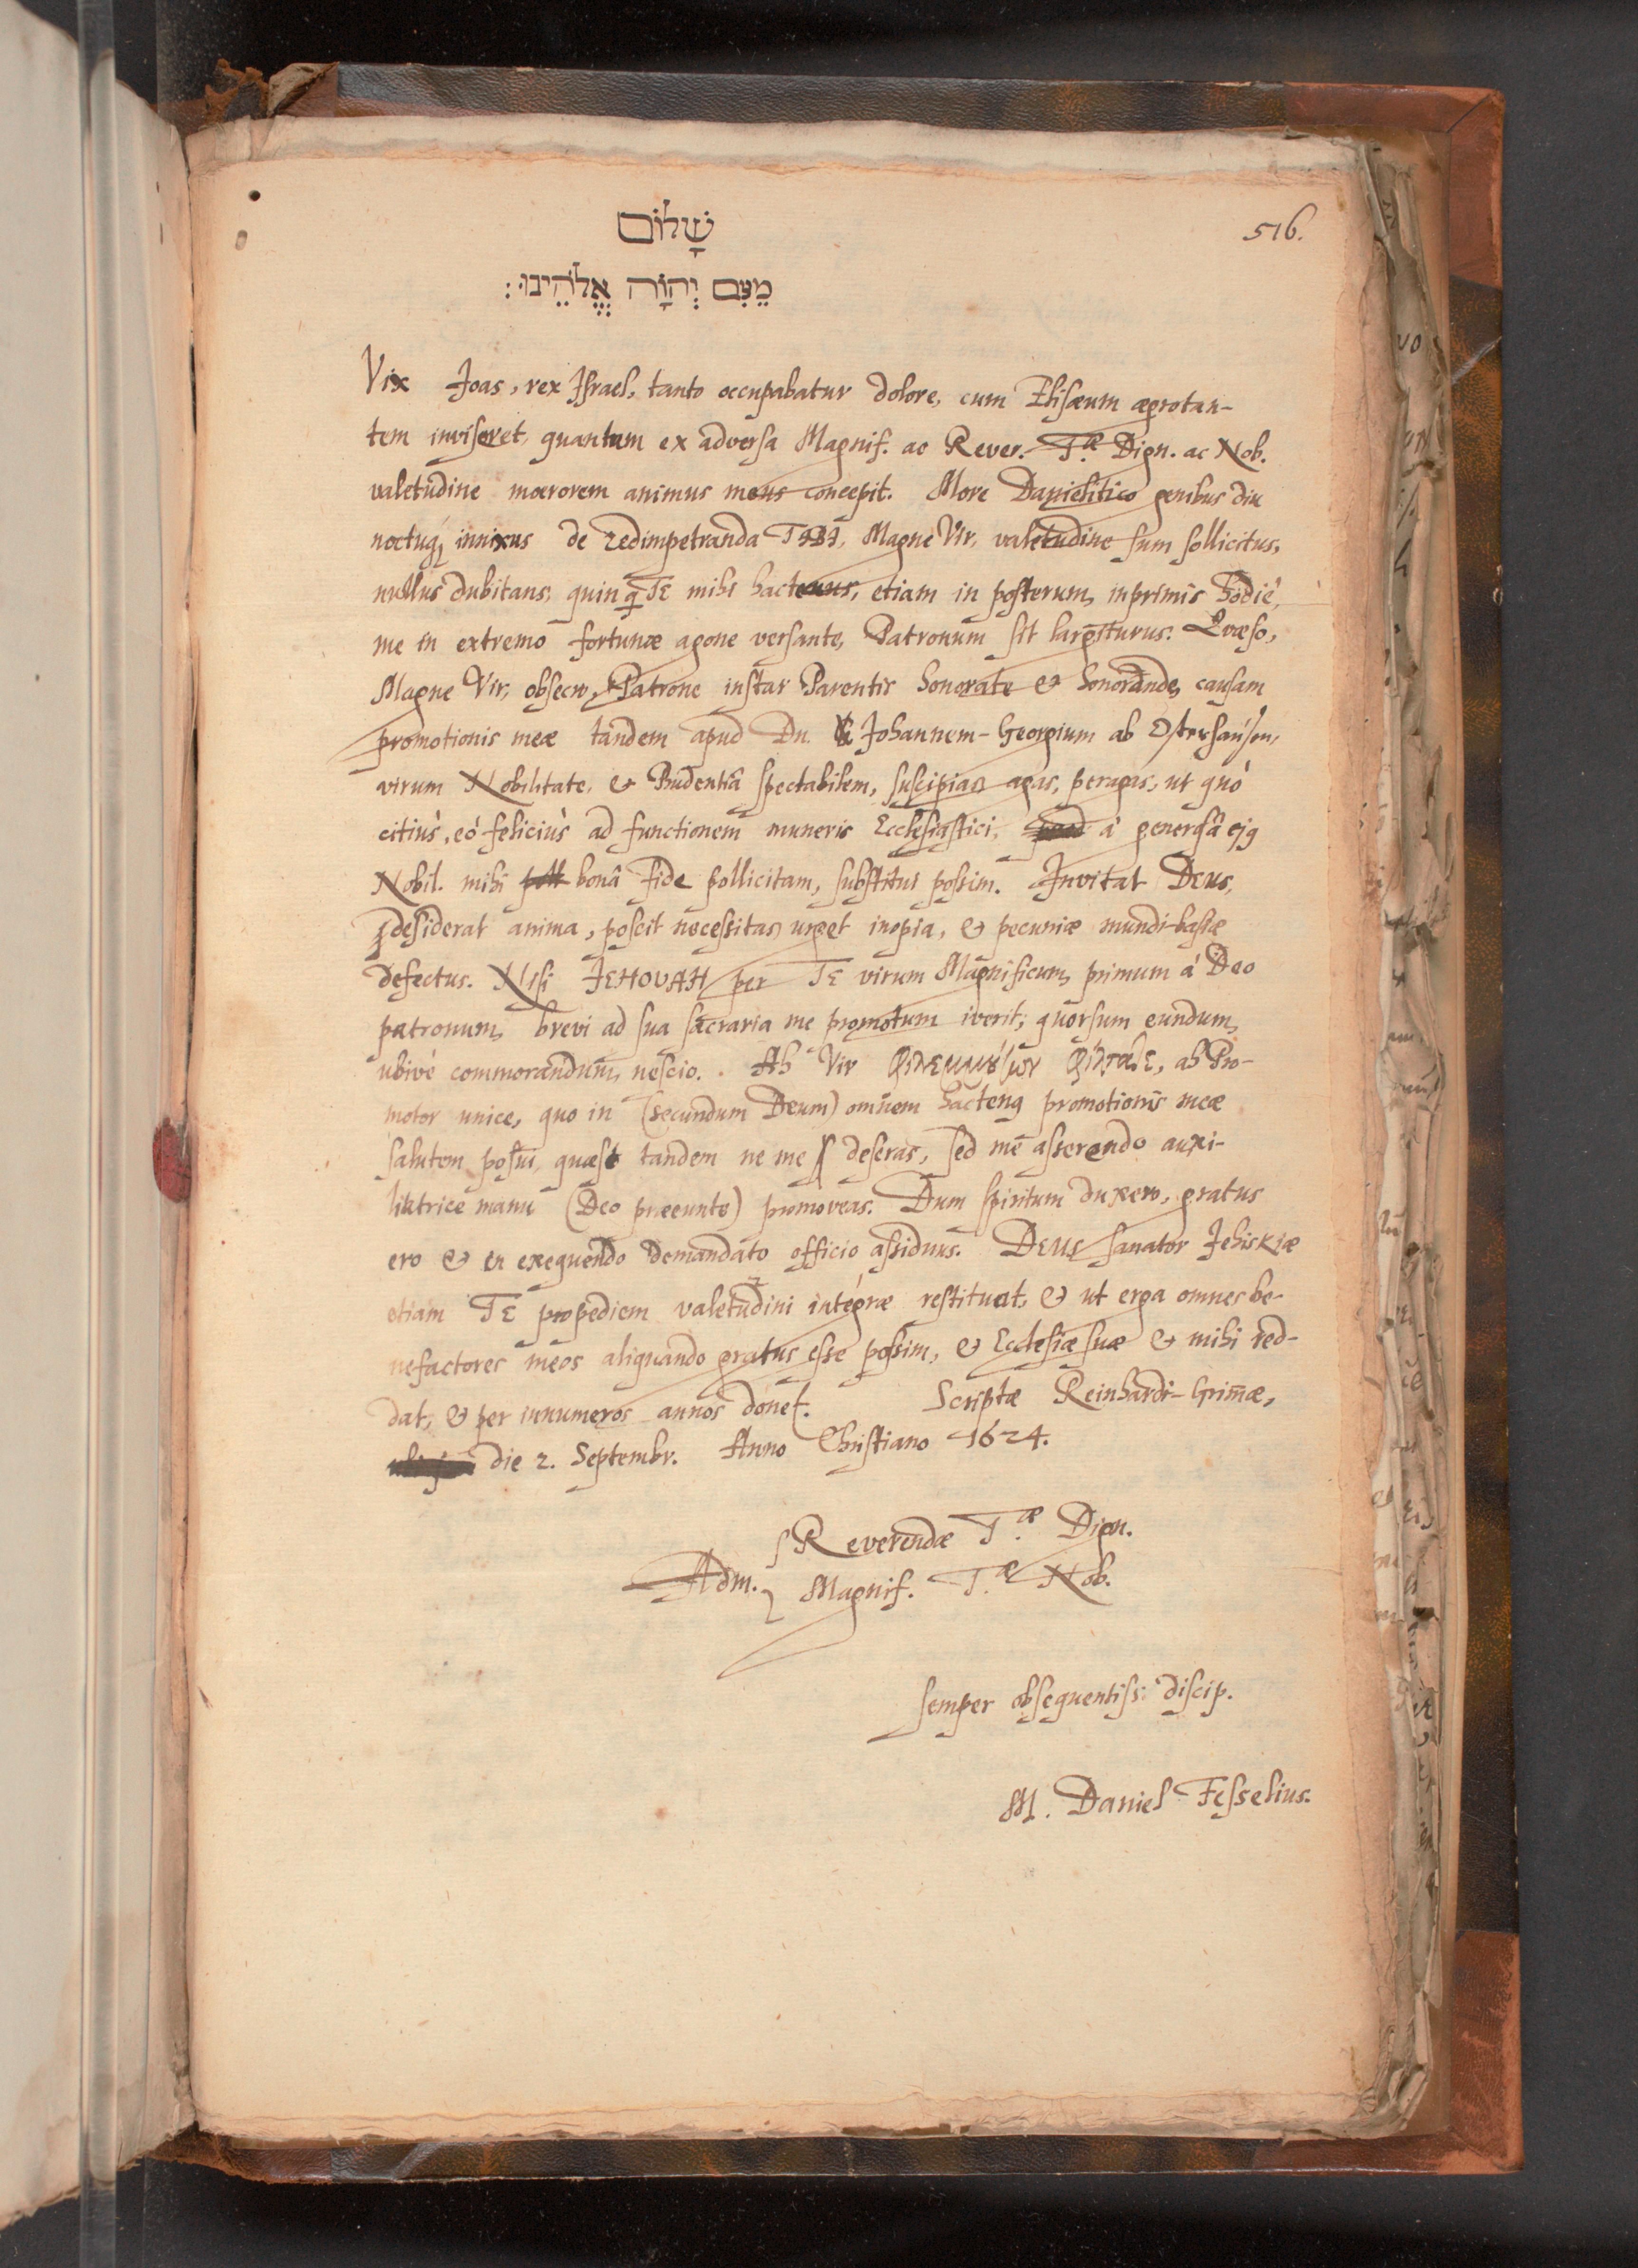 516.
שָׁלוֹם
מֵעִם יְהוָֹה אֱלֹהֵינוּ:
Vix Joas, rex Israel, tanto occupabatur dolore, cum Elisæum ægrotan-
tem inviseret, quantum ex adversa Magnif. ac Rever. T.æ Dign. ac Nob.
valetudine moerorem animus meus concepit. More Danielitico genibus diu
noctuq; innixus de redimpetranda Magne Vir, valetudine sum sollicitus,
nullus dubitans, quin TE mihi hactenus, etiam in posterum, inprimis hodiè,
me in extremo fortunæ agone versante, Patronum sit largiturus. Quæso,
Magne Vir, obsecro, Patrone instar Parentis honorate & honorande, causam
promotionis meæ tandem apud Dn. Johannem-Georgium ab Osterhausen,
virum Nobilitate, & Prudentiâ spectabilem, suscipias agas, peragas, ut quò
citiùs, eò feliciùs ad functionem muneris Ecclesiastici, à generosâ ejꝰ
Nobil. mihi bonâ fide pollicitam, substitui possim. Invitat DEUS,
desiderat anima, poscit necessitas, urget inopia, & pecuniæ mundi-hastæ
defectus. Nisi JEHOVAH per TE virum Magnificum, primum à Deo
patronum, brevi ad sua sacraria me promotum iverit; quorsum eundum,
ubivè commorandum, nescio. Ah Vir φίλταλε, ah Pro-
motor unice, quo in (secundum Deum) omnem hactenꝰ promotionis meæ
salutem posui, quæso tandem ne me deseras, sed me asserendo auxi-
liatrice manu (Deo præeunte) promoveas. Dum spiritum duxero, gratus
ero & in exequendo demandato officio assiduus. DEUS sanator Jehiskiæ
etiam TE propediem valetudini integræ restituat, & ut erga omnes be-
nefactores meos aliquando gratus esse possim, & Ecclesiæ suæ & mihi red-
dat, & per innumeros annos donet. Scriptæ Reinhardi-Grimæ,
die 2. Septembr. Anno Christiano 1624.
Reverendæ T.æ Dign.
Adm.
Magnif. T.æ Nob.
semper obsequentiss. discip.
M. Daniel Fesselius.